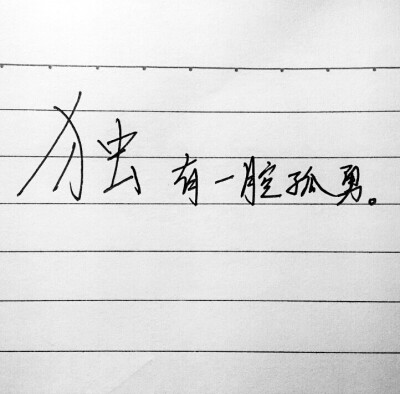 独有一腔孤勇。